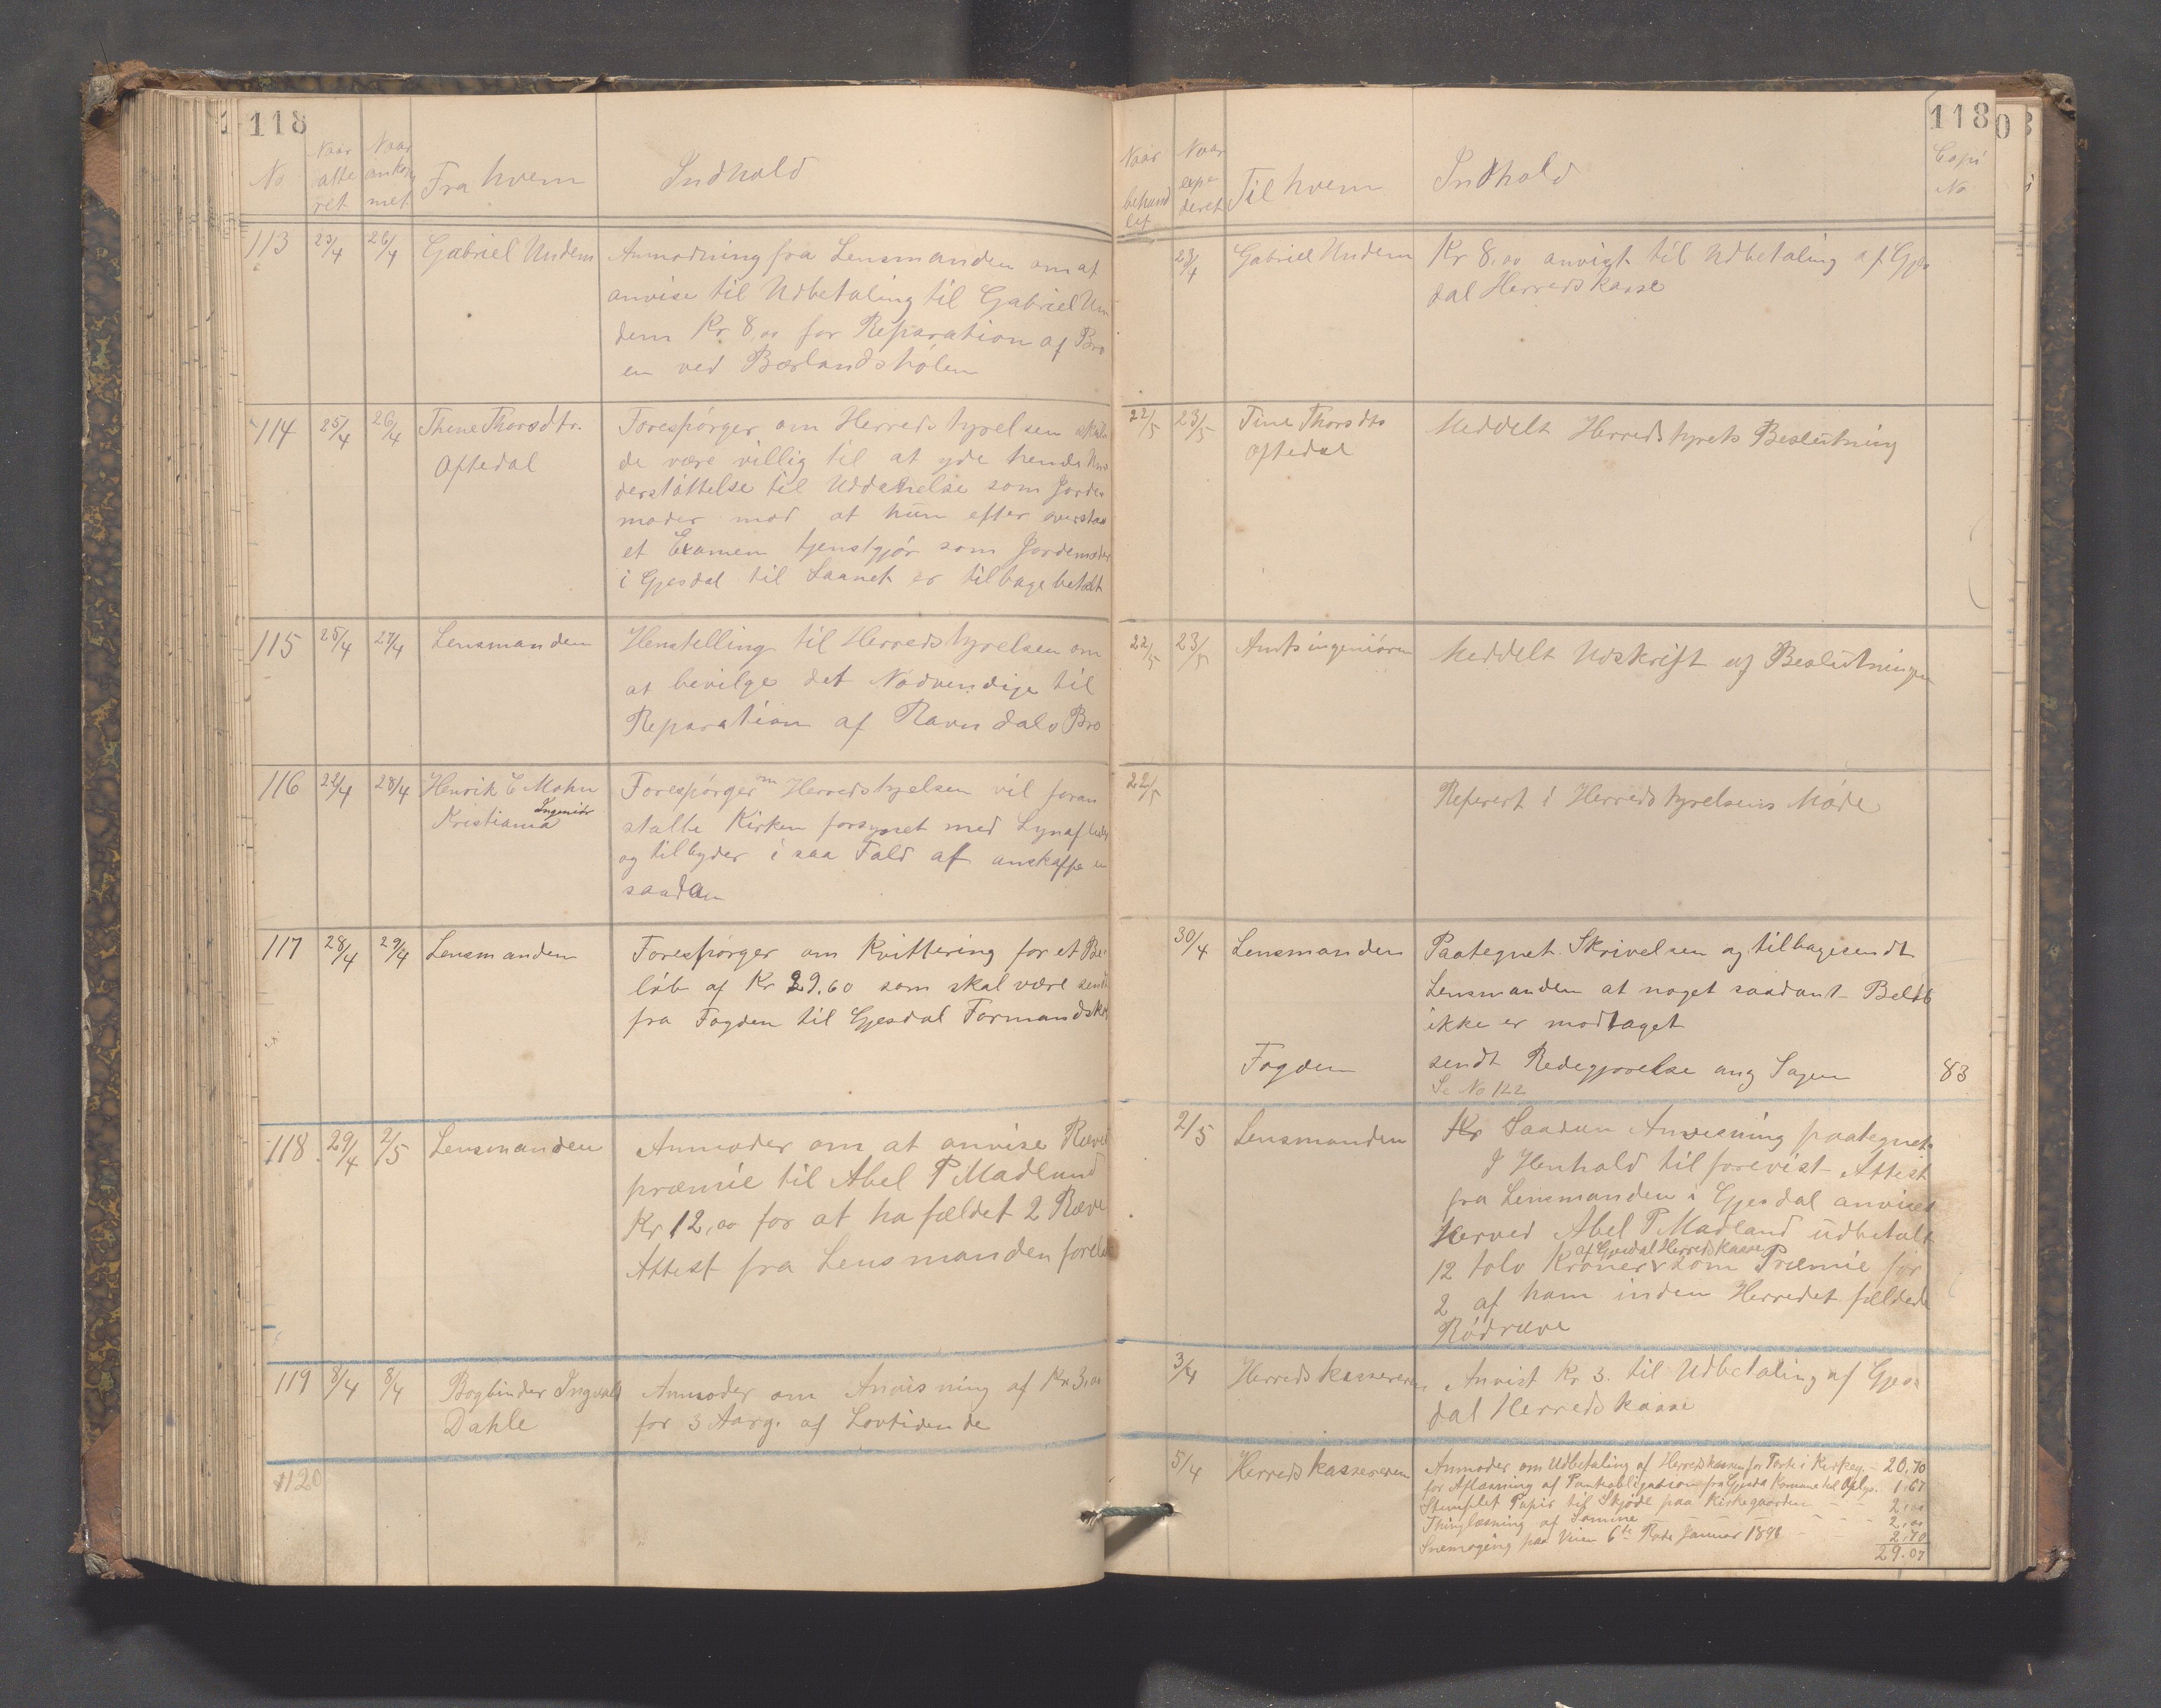 118
No
Naar atte ret
Naar ankom met
Fra hvem
Indhold
113 25/4 26/4 Gabriel Undem
Anmodning fra Lensmanden om at
anvise til Udbetaling til Gabriel Un
dem Kr 8,00 for Reparation af Bro
en ved Bærlandshølen
114 25/4 26/4 Thine Thorsdtr.
Oftedal
Forespørger om Herredstyrelsen skul
de være villig til at yde hende Un
derstøttelse til Uddanelse som Jorde
moder mod at hun efter overstaa
et Examen tjenstgjør som Jordemoder
i Gjesdal til Laanet er tilbagebetalt
115 25/4 27/4 Lensmanden
Henstilling til Herredstyrelsen om
at bevilge det Nødvendige til
Reparation af Ravndals Bro
116 22/4 28/4 Henrik C Mohn
Ingeniør
Kristiania
Forespørger om Herredstyrelsen vil foran
stalte Kirken forsynet med Lynafleder
og tilbyder i saa Fald af anskaffe en
saadan
117 28/4 29/4 Lensmanden
Forespørger om Kvittering for et Be
løb af Kr 29.60 som skal være sendt
fra Fogden til Gjesdal Formandsk
118 29/4 2/5 Lensmanden
Anmoder om at anvise Ræve
præmie til Abel P Madland
Kr 12,00 for at ha fældet 2 Ræve
Attest fra Lensmanden forela
119 8/4 8/4 Bogbinder Ingvald
Dahle
Anmoder om Anvisning af Kr 3,00
for 3 Aarg. af Lovtidende
120
118
Naar behand let
Naar expe deret
Til hvem
Indhold
Copi No
28/4 Gabriel Undem
Kr 8,00 anvist til Udbetaling af Gjes
dal Herredskasse
22/5 23/5 Tine Thorsdtr
Oftedal
Meddelt Herredstyrets Beslutning
22/5 23/5 Amtsingeniøren
Meddelt Udskrift af Beslutningen
22/5 Referert i Herredstyrelsens Møde
30/4 Lensmanden
Paategnet Skrivelsen og tilbagesendt
Lensmanden at noget saadant Beløb
ikke er modtaget
Fogden sendt Redegjørelse ang Sagen 83
Se No 122
2/5 Lensmanden
Kr Saadan Anvisning paategnet
I Henhold til forevist Attest
fra Lensmanden i Gjesdal anvises
herved Abel P Madland udbetalt
af Gjesdal Herredskasse
12 tolv Kroner som Præmie for
2 af ham inden Herredet fældede
Rødræve
3/4 Herredskassereren
Anvist Kr 3. til Udbetaling af Gjes=
dal Herredskasse
5/4 Herredskassereren
Anmoder om Udbetaling af Herredskassen for Port i Kirkeg. - 20,70
for Aflæsning af Pantobligation fra Gjesdal Kommune til Oplys. 1,67
Stemplet Papir til Skjøde paa Kirkegaarden - - 2,00
Thinglæsning af Samme - - - - - - 2,00
Snemoging paa Veien 6te Rode Januar 1898 - - 2,70
29.07